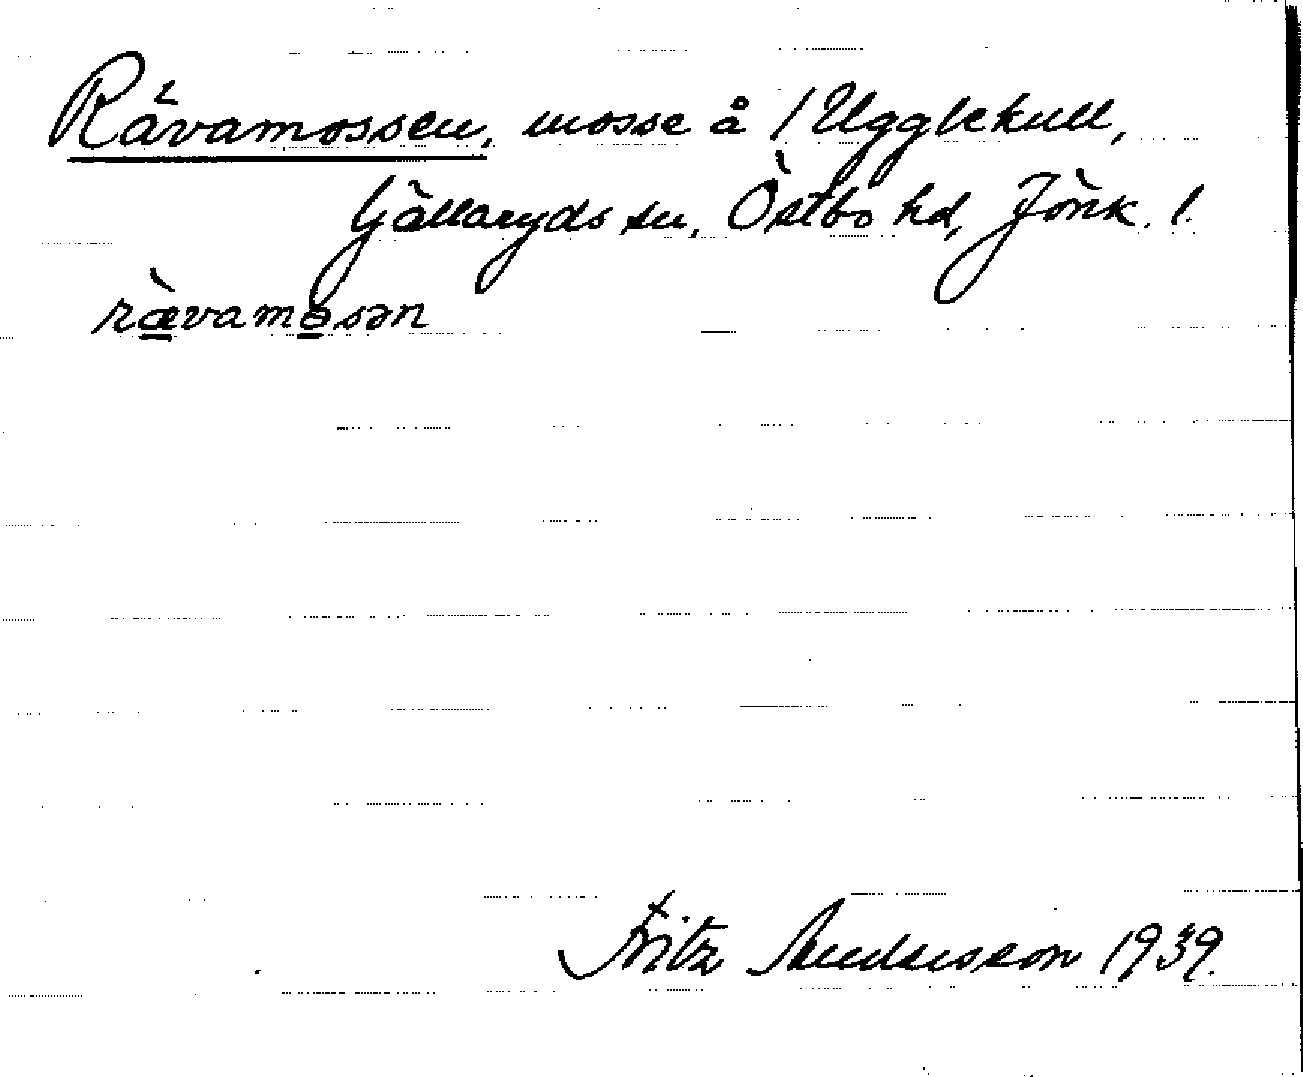 Rävamossen, mosse å /Ugglekull,
Gällaryds sn, Östbo hd, Jönk. l.
rævamosən
Fritz Andersson 1939.